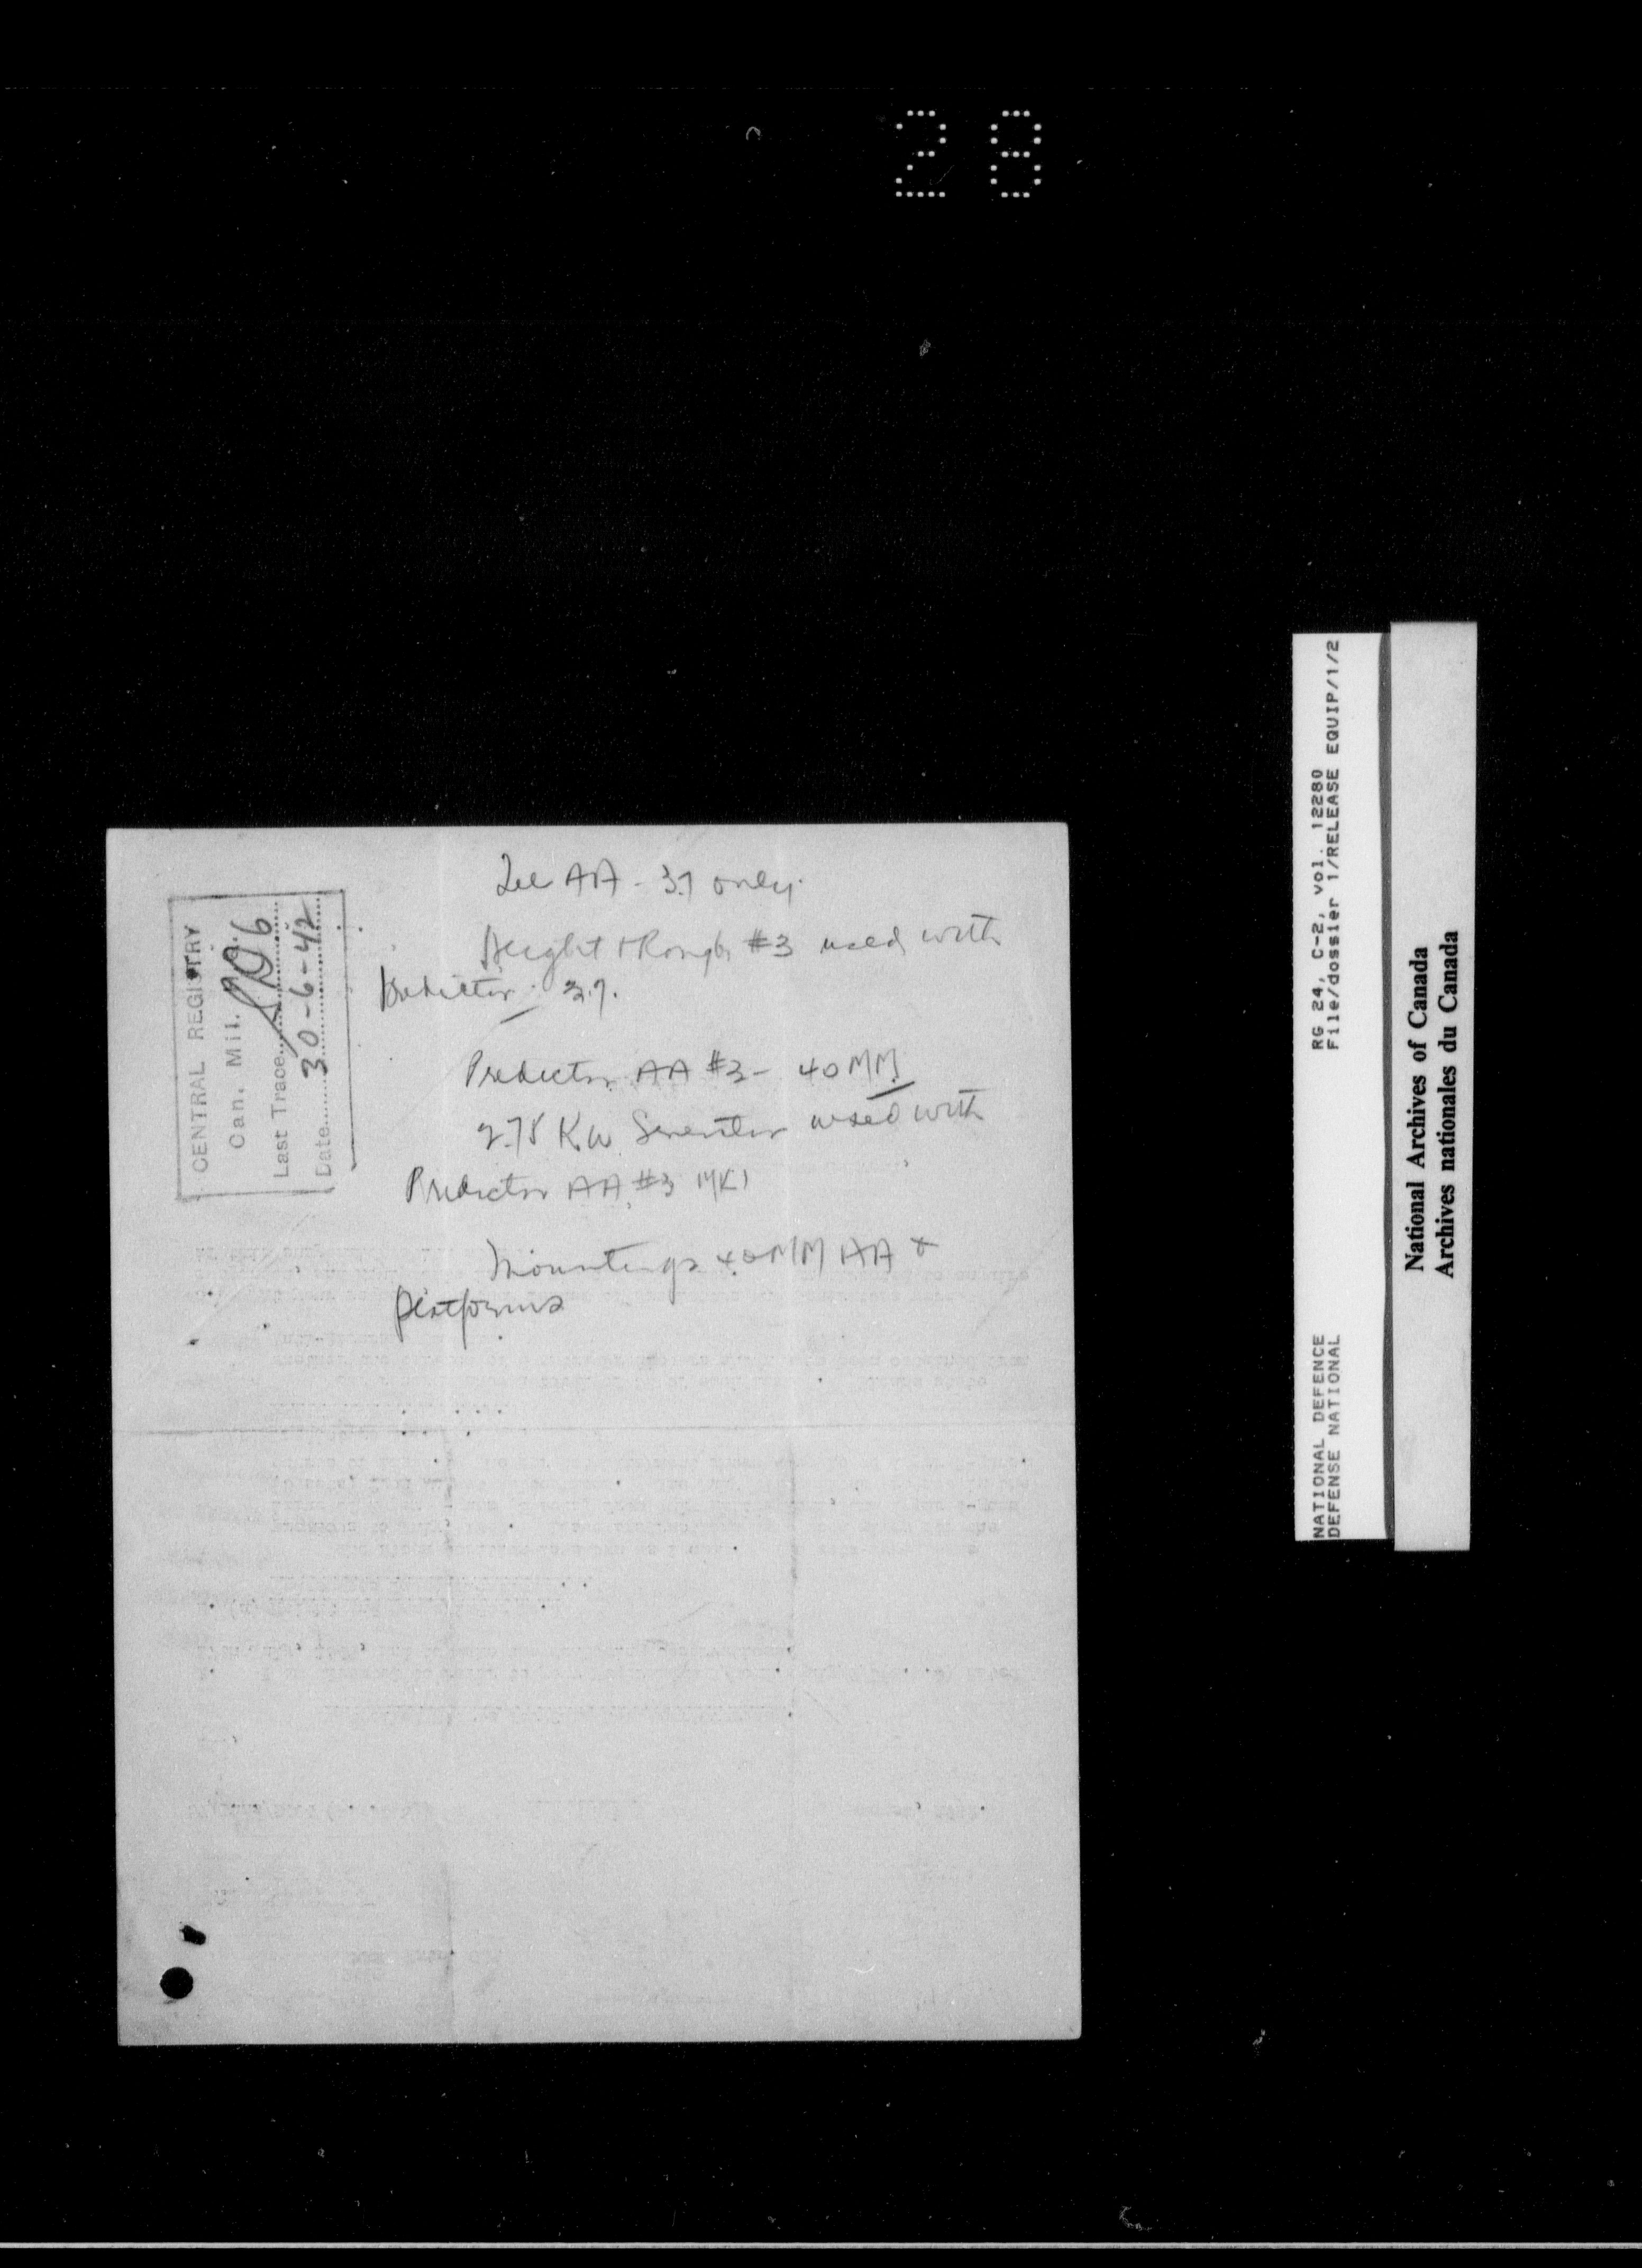 28
AA - 3.7 only.
Height & Range #3 used with
Predictor 3.7.
Predictor AA #3 - 40 MM
2.75 KW Generator used with
Predictor AA #3 MK1
Mountings 40 MM AA &
platforms
CENTRAL REGISTRY
Can. Mil.
Last Trace
Date 30-6-42
RG 24, C-2, vol. 12280
File/dossier 1/RELEASE EQUIP/1/2
NATIONAL DEFENCE
DEFENSE NATIONAL
National Archives of Canada
Archives nationales du Canada